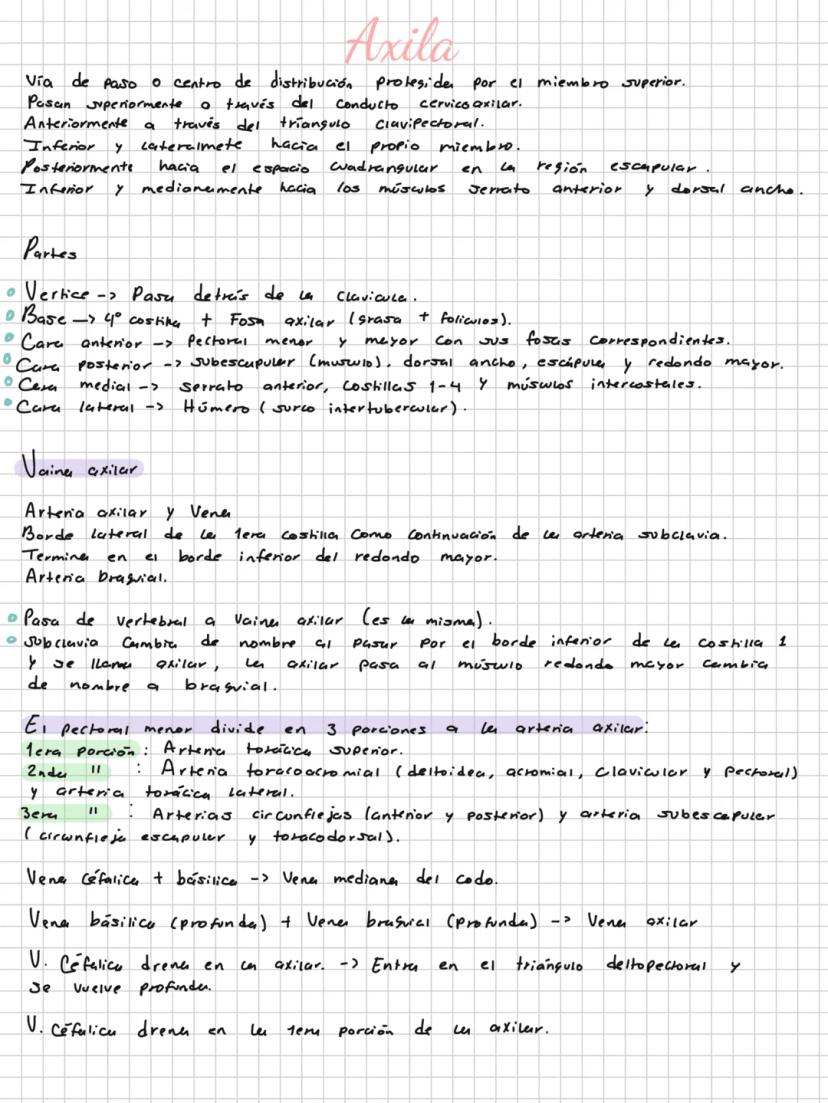 Axila
Vía de paso o centro de distribución protegida por el miembro superior.
Pasan superiormente a través del conducto cervicoaxilar.
Anteriormente a través del triangulo clavipectoral.
Inferior y lateralmete hacia el propio miembro.
Posteriormente hacia el espacio cuadrangular en la región escapular.
Inferior y medianamente hacia los músculos serrato anterior y dorsal ancho.
Partes
Vertice -> Pasa detrás de la clavicula.
Base -> 4° costilla + Fosa axilar (grasa + foliculos).
Cara anterior -> Pectoral menor y mayor con sus fosas correspondientes.
Cara posterior -> subescapular (musculo), dorsal ancho, escápula y redondo mayor.
Cara medial -> serrato anterior, costillas 1-4 y músculos intercostales.
Cara lateral -> Húmero (surco intertubercular).
Vaina axilar
Arteria axilar y Vena
Borde lateral de la 1era costilla como continuación de la arteria subclavia.
Termina en el borde inferior del redondo mayor.
Arteria braquial.
Pasa de vertebral a vaina axilar (es la misma).
subclavia cambia de nombre al pasar por el borde inferior de la costilla 1
y se llama axilar, la axilar pasa al músculo redondo mayor cambia
de nombre a braquial.
El pectoral menor divide en 3 porciones a la arteria axilar:
1era porción: Arteria torácica superior.
2nda " : Arteria toracoacromial (deltoidea, acromial, clavicular y pectoral)
y arteria torácica lateral.
3era " : Arterias circunflejas (anterior y posterior) y arteria subescapular
(circunfleja escapular y toracodorsal).
Vena céfalica + básilica -> Vena mediana del codo.
Vena básilica (profunda) + Vena braquial (profunda) -> Vena axilar
V. Céfalica drena en la axilar. -> Entra en el triángulo deltopectoral y
se vuelve profunda.
V. Céfalica drena en la 1era porción de la axilar.